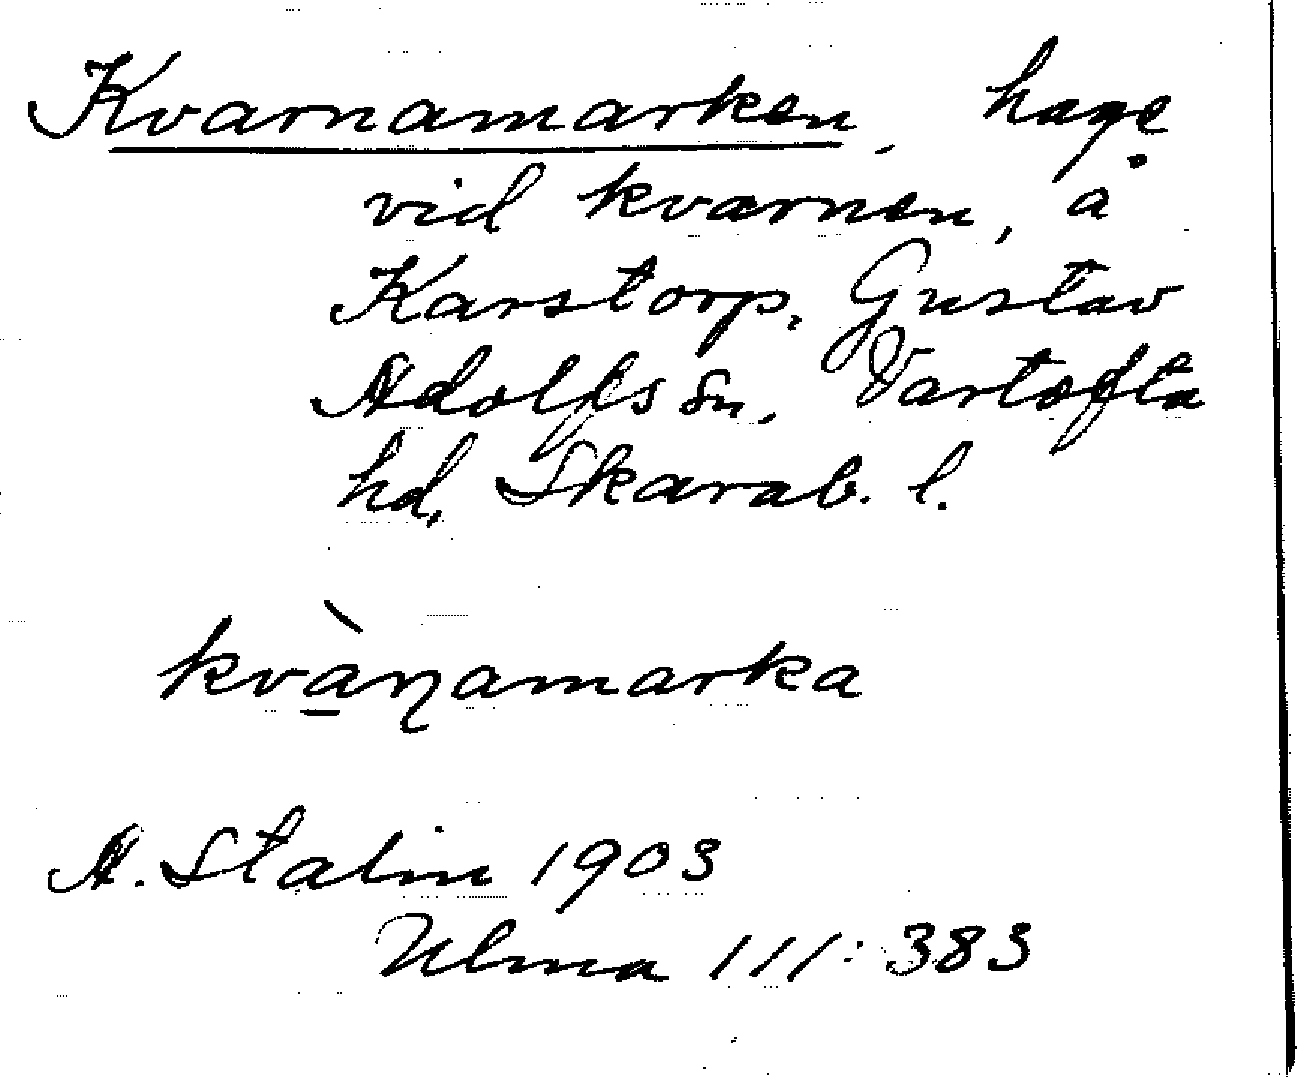 Kvarnamarken, hage
vid kvarnen, å
Karstorp, Gustav
Adolfs sn, Vartofta
hd, Skarab. l.
kvàɳamarka
A. Stalin 1903
Ulma 111:383